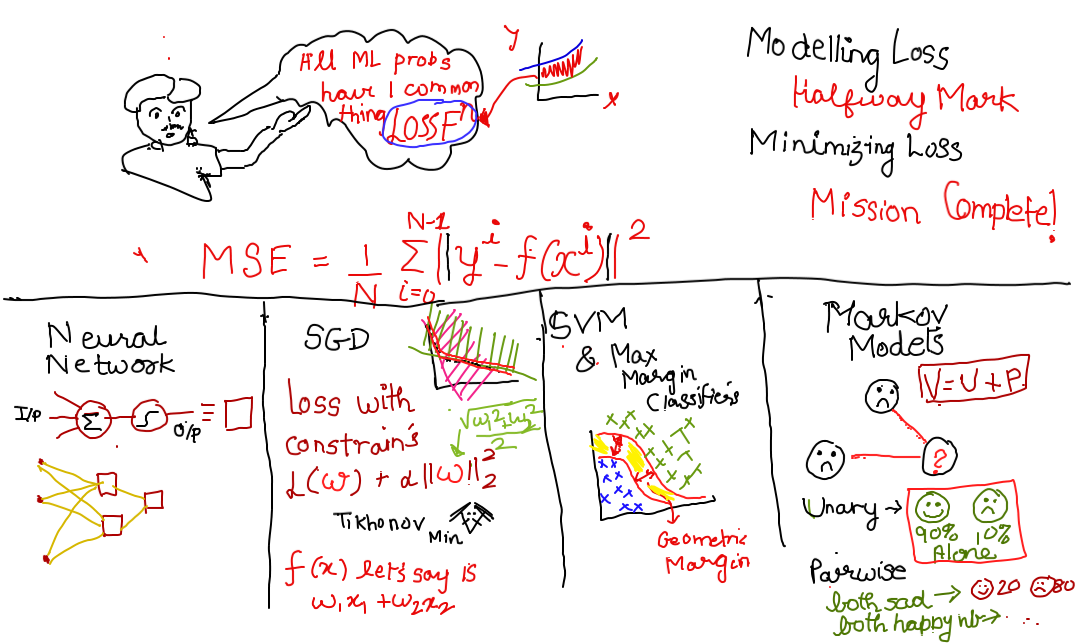 All ML probs
have 1 common
thing LOSS Fⁿ
y
x
Modelling Loss
Halfway Mark
Minimizing Loss
Mission Complete!
MSE = 1/N Σ_{i=0}^{N-1} ||y^i - f(x^i)||^2
Neural
Network
I/p Σ O/p
SGD
Loss with
constrain's
√w₁²+w₂²
2
L(w) + α||w||₂²
Tikhonov Min
f(x) let's say is
w₁x₁ + w₂x₂
SVM
& Max
Margin
Classifiers
Geometric
Margin
Markov
Models
V=U+P
?
Unary →
90% 10%
Alone
Pairwise
both sad → 20 80
both happy nb → ...